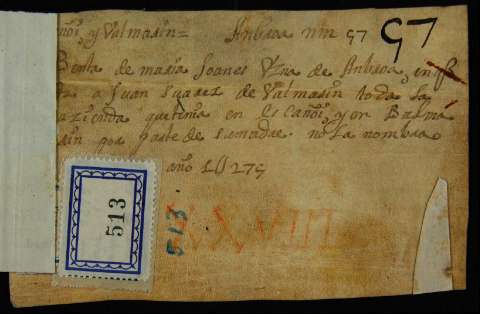 y Valmasin= Anbroa nu 97 97
Benta de maria Joanes Vzna de Anbroa, en q
a Juan Suarez de Valmasin toda la
azienda que tenia en Escañoi, y or Balma
sin por parte de su madre. no la nombra
año 1279
513
513
XXVIII